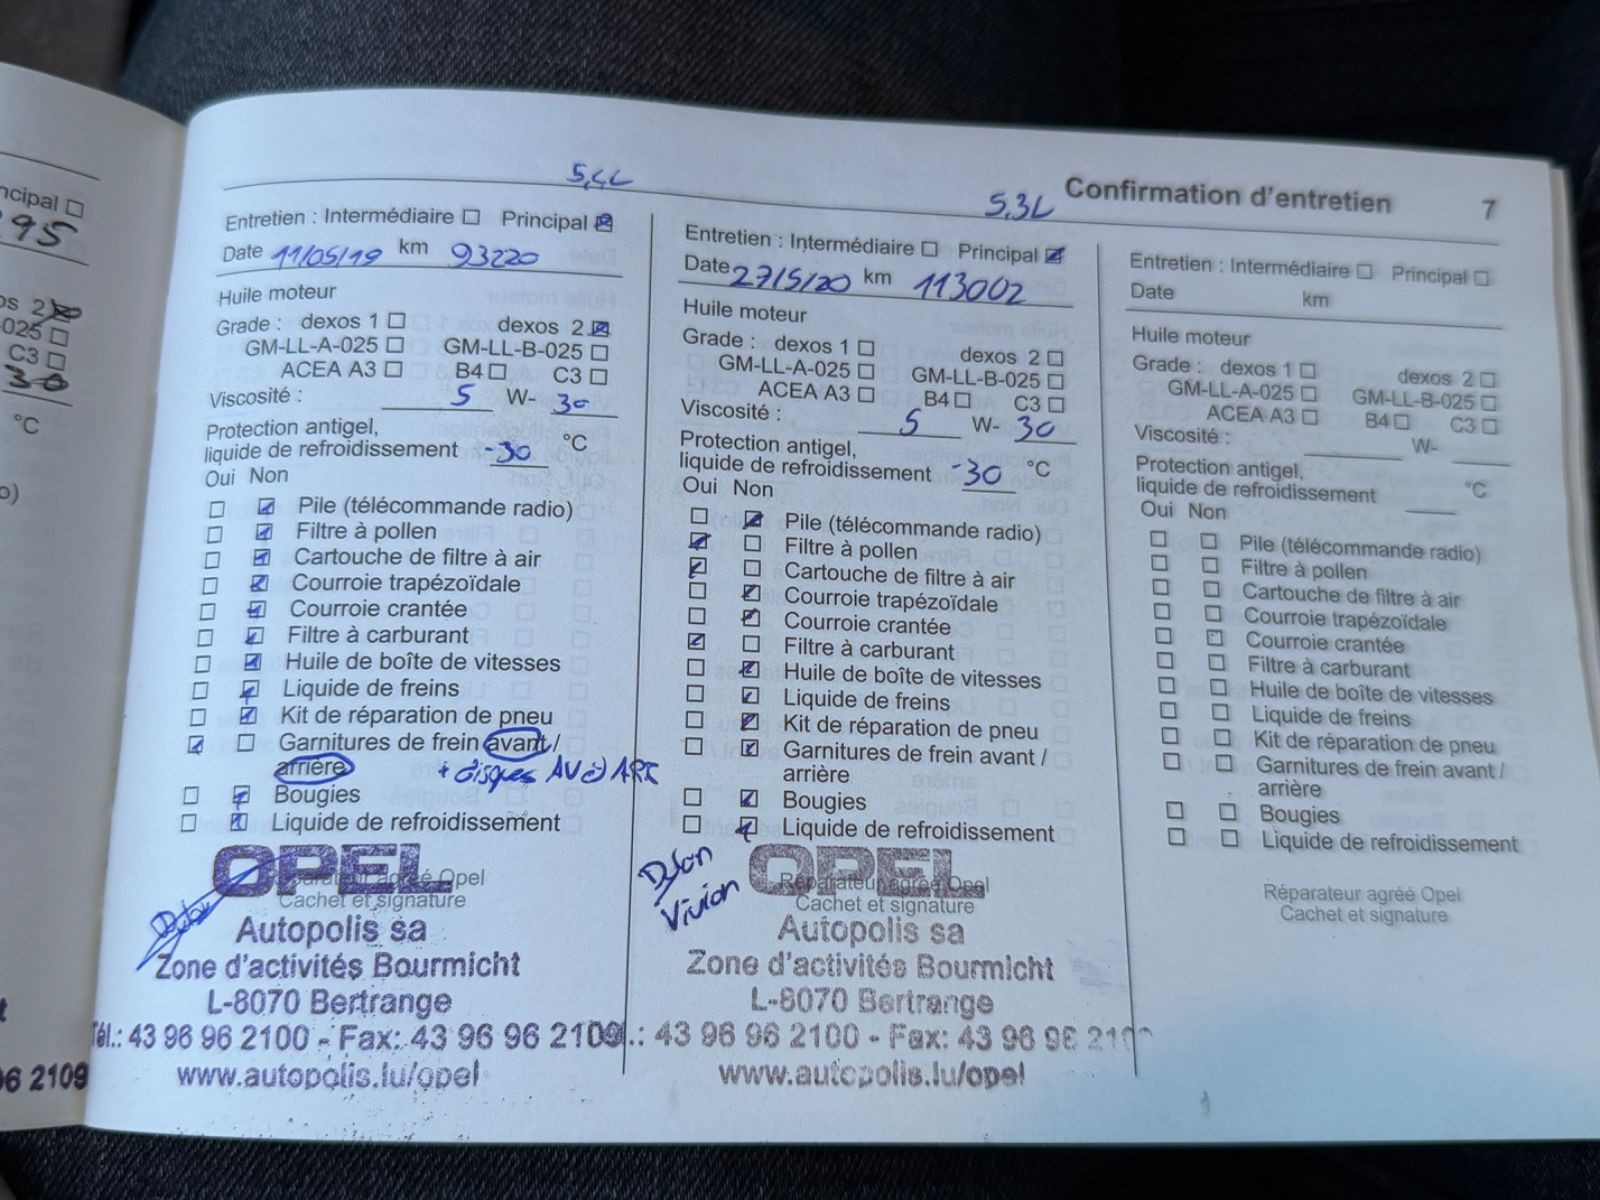 ncipal ☐
295
os 2 ☒
-025 ☐
C3 ☐
30
°C
o)
96 2109
Confirmation d'entretien 7
5,4L
Entretien : Intermédiaire ☐ Principal ☒
Date 11/05/19 km 93220
Huile moteur
Grade : dexos 1 ☐ dexos 2 ☒
GM-LL-A-025 ☐ GM-LL-B-025 ☐
ACEA A3 ☐ B4 ☐ C3 ☐
Viscosité : 5 W- 30
Protection antigel,
liquide de refroidissement -30 °C
Oui Non
☐ ☒ Pile (télécommande radio)
☐ ☒ Filtre à pollen
☐ ☒ Cartouche de filtre à air
☐ ☒ Courroie trapézoïdale
☐ ☒ Courroie crantée
☐ ☒ Filtre à carburant
☐ ☒ Huile de boîte de vitesses
☐ ☒ Liquide de freins
☐ ☒ Kit de réparation de pneu
☒ ☐ Garnitures de frein avant /
arrière + disques AV et ARR
☐ ☒ Bougies
☐ ☒ Liquide de refroidissement
OPEL
Réparateur agréé Opel
Cachet et signature
Autopolis sa
Zone d'activités Bourmicht
L-8070 Bertrange
Tél.: 43 96 96 2100 - Fax: 43 96 96 2109
www.autopolis.lu/opel
5,3L
Entretien : Intermédiaire ☐ Principal ☒
Date 27/5/20 km 113002
Huile moteur
Grade : dexos 1 ☐ dexos 2 ☐
GM-LL-A-025 ☐ GM-LL-B-025 ☐
ACEA A3 ☐ B4 ☐ C3 ☐
Viscosité : 5 W- 30
Protection antigel,
liquide de refroidissement -30 °C
Oui Non
☐ ☒ Pile (télécommande radio)
☒ ☐ Filtre à pollen
☒ ☐ Cartouche de filtre à air
☐ ☒ Courroie trapézoïdale
☐ ☒ Courroie crantée
☒ ☐ Filtre à carburant
☐ ☒ Huile de boîte de vitesses
☐ ☒ Liquide de freins
☐ ☒ Kit de réparation de pneu
☐ ☒ Garnitures de frein avant /
arrière
☐ ☒ Bougies
☐ ☒ Liquide de refroidissement
Dylan
Vivian
OPEL
Réparateur agréé Opel
Cachet et signature
Autopolis sa
Zone d'activités Bourmicht
L-8070 Bertrange
.: 43 96 96 2100 - Fax: 43 96 96 210
www.autopolis.lu/opel
Entretien : Intermédiaire ☐ Principal ☐
Date km
Huile moteur
Grade : dexos 1 ☐ dexos 2 ☐
GM-LL-A-025 ☐ GM-LL-B-025 ☐
ACEA A3 ☐ B4 ☐ C3 ☐
Viscosité : W-
Protection antigel,
liquide de refroidissement °C
Oui Non
☐ ☐ Pile (télécommande radio)
☐ ☐ Filtre à pollen
☐ ☐ Cartouche de filtre à air
☐ ☐ Courroie trapézoïdale
☐ ☐ Courroie crantée
☐ ☐ Filtre à carburant
☐ ☐ Huile de boîte de vitesses
☐ ☐ Liquide de freins
☐ ☐ Kit de réparation de pneu
☐ ☐ Garnitures de frein avant /
arrière
☐ ☐ Bougies
☐ ☐ Liquide de refroidissement
Réparateur agréé Opel
Cachet et signature